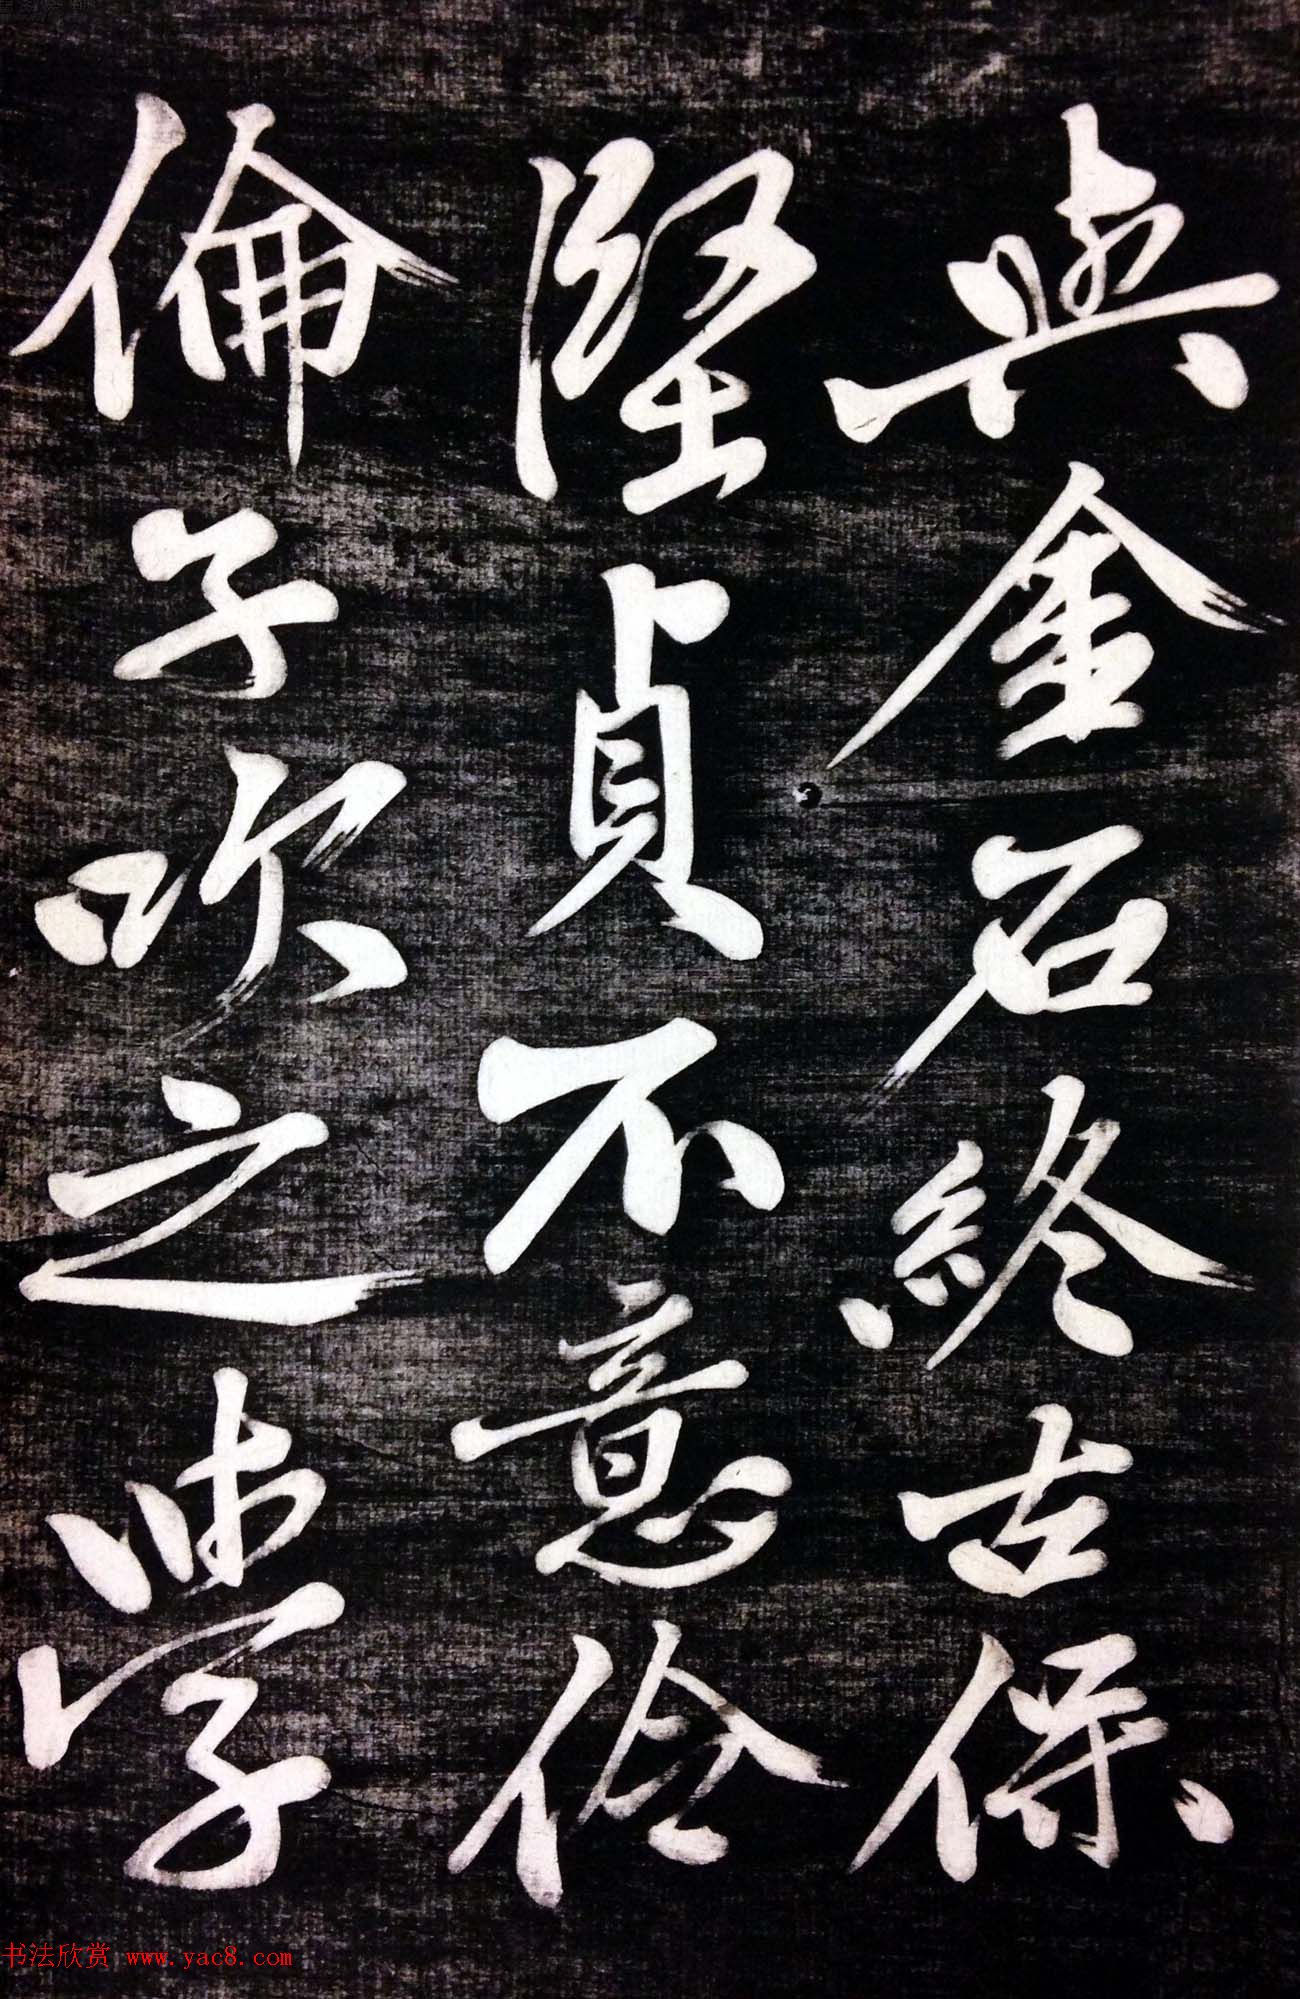 與金石終古保
堅貞不意伶
倫子吹之律學
书法欣赏 www.yac8.com